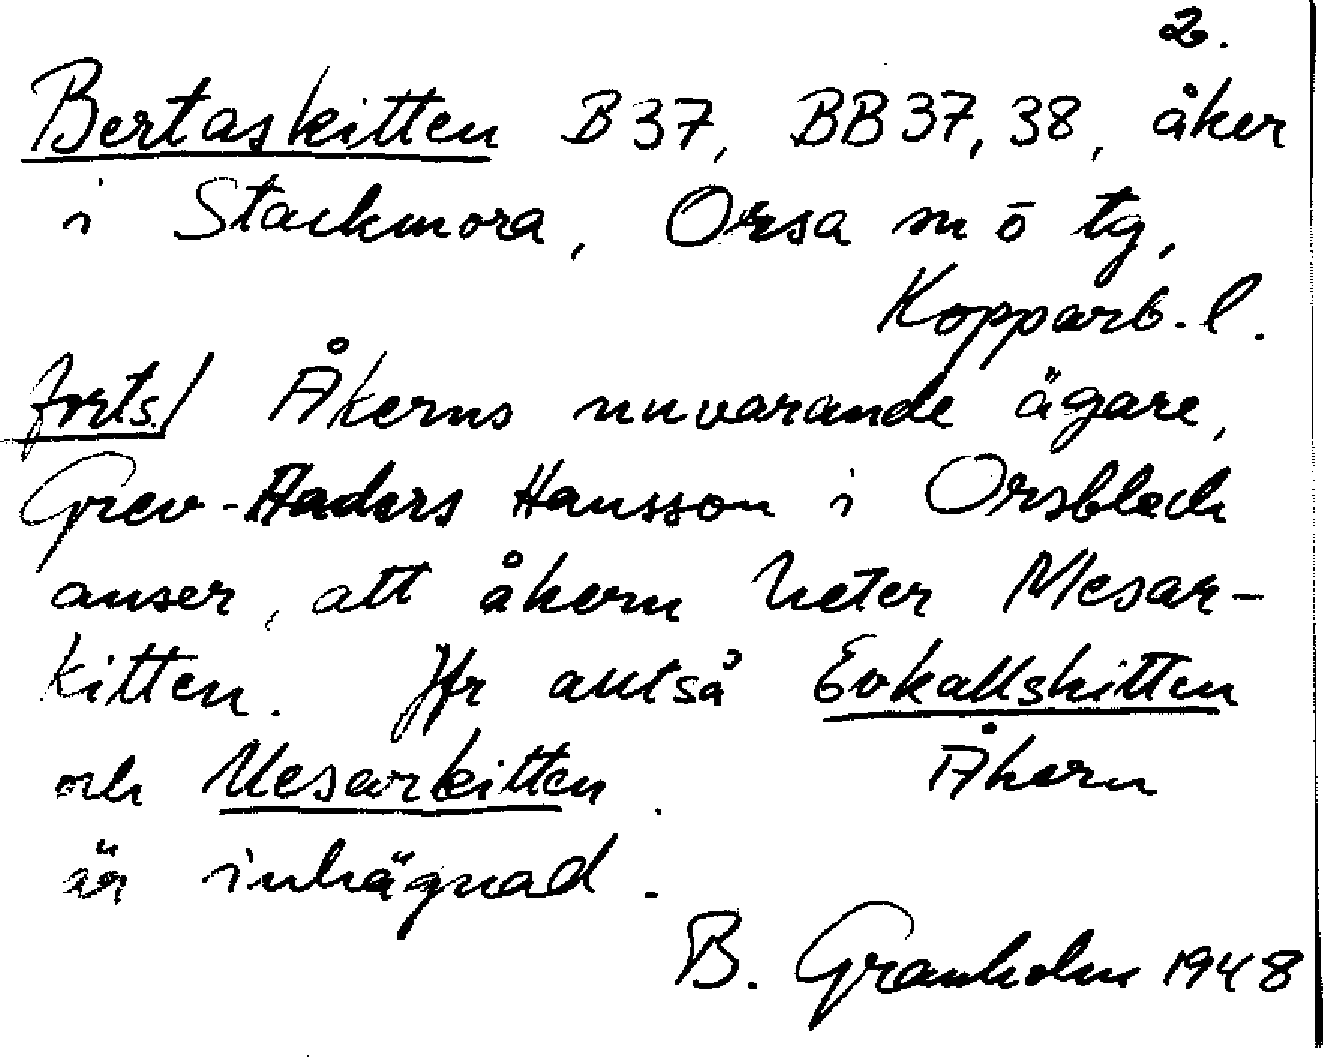 2.
Bertaskitten B37, BB37, 38, åker
i Stackmora, Orsa sn ö tg,
Kopparb. l.
forts./ Åkerns nuvarande ägare,
Grev-Anders Hansson i Orsbleck
anser, att åkern heter Mesar-
kitten. Jfr också Evkallskitten
och Mesarkitten. Åkern
är inhägnad.
B. Granholm 1948